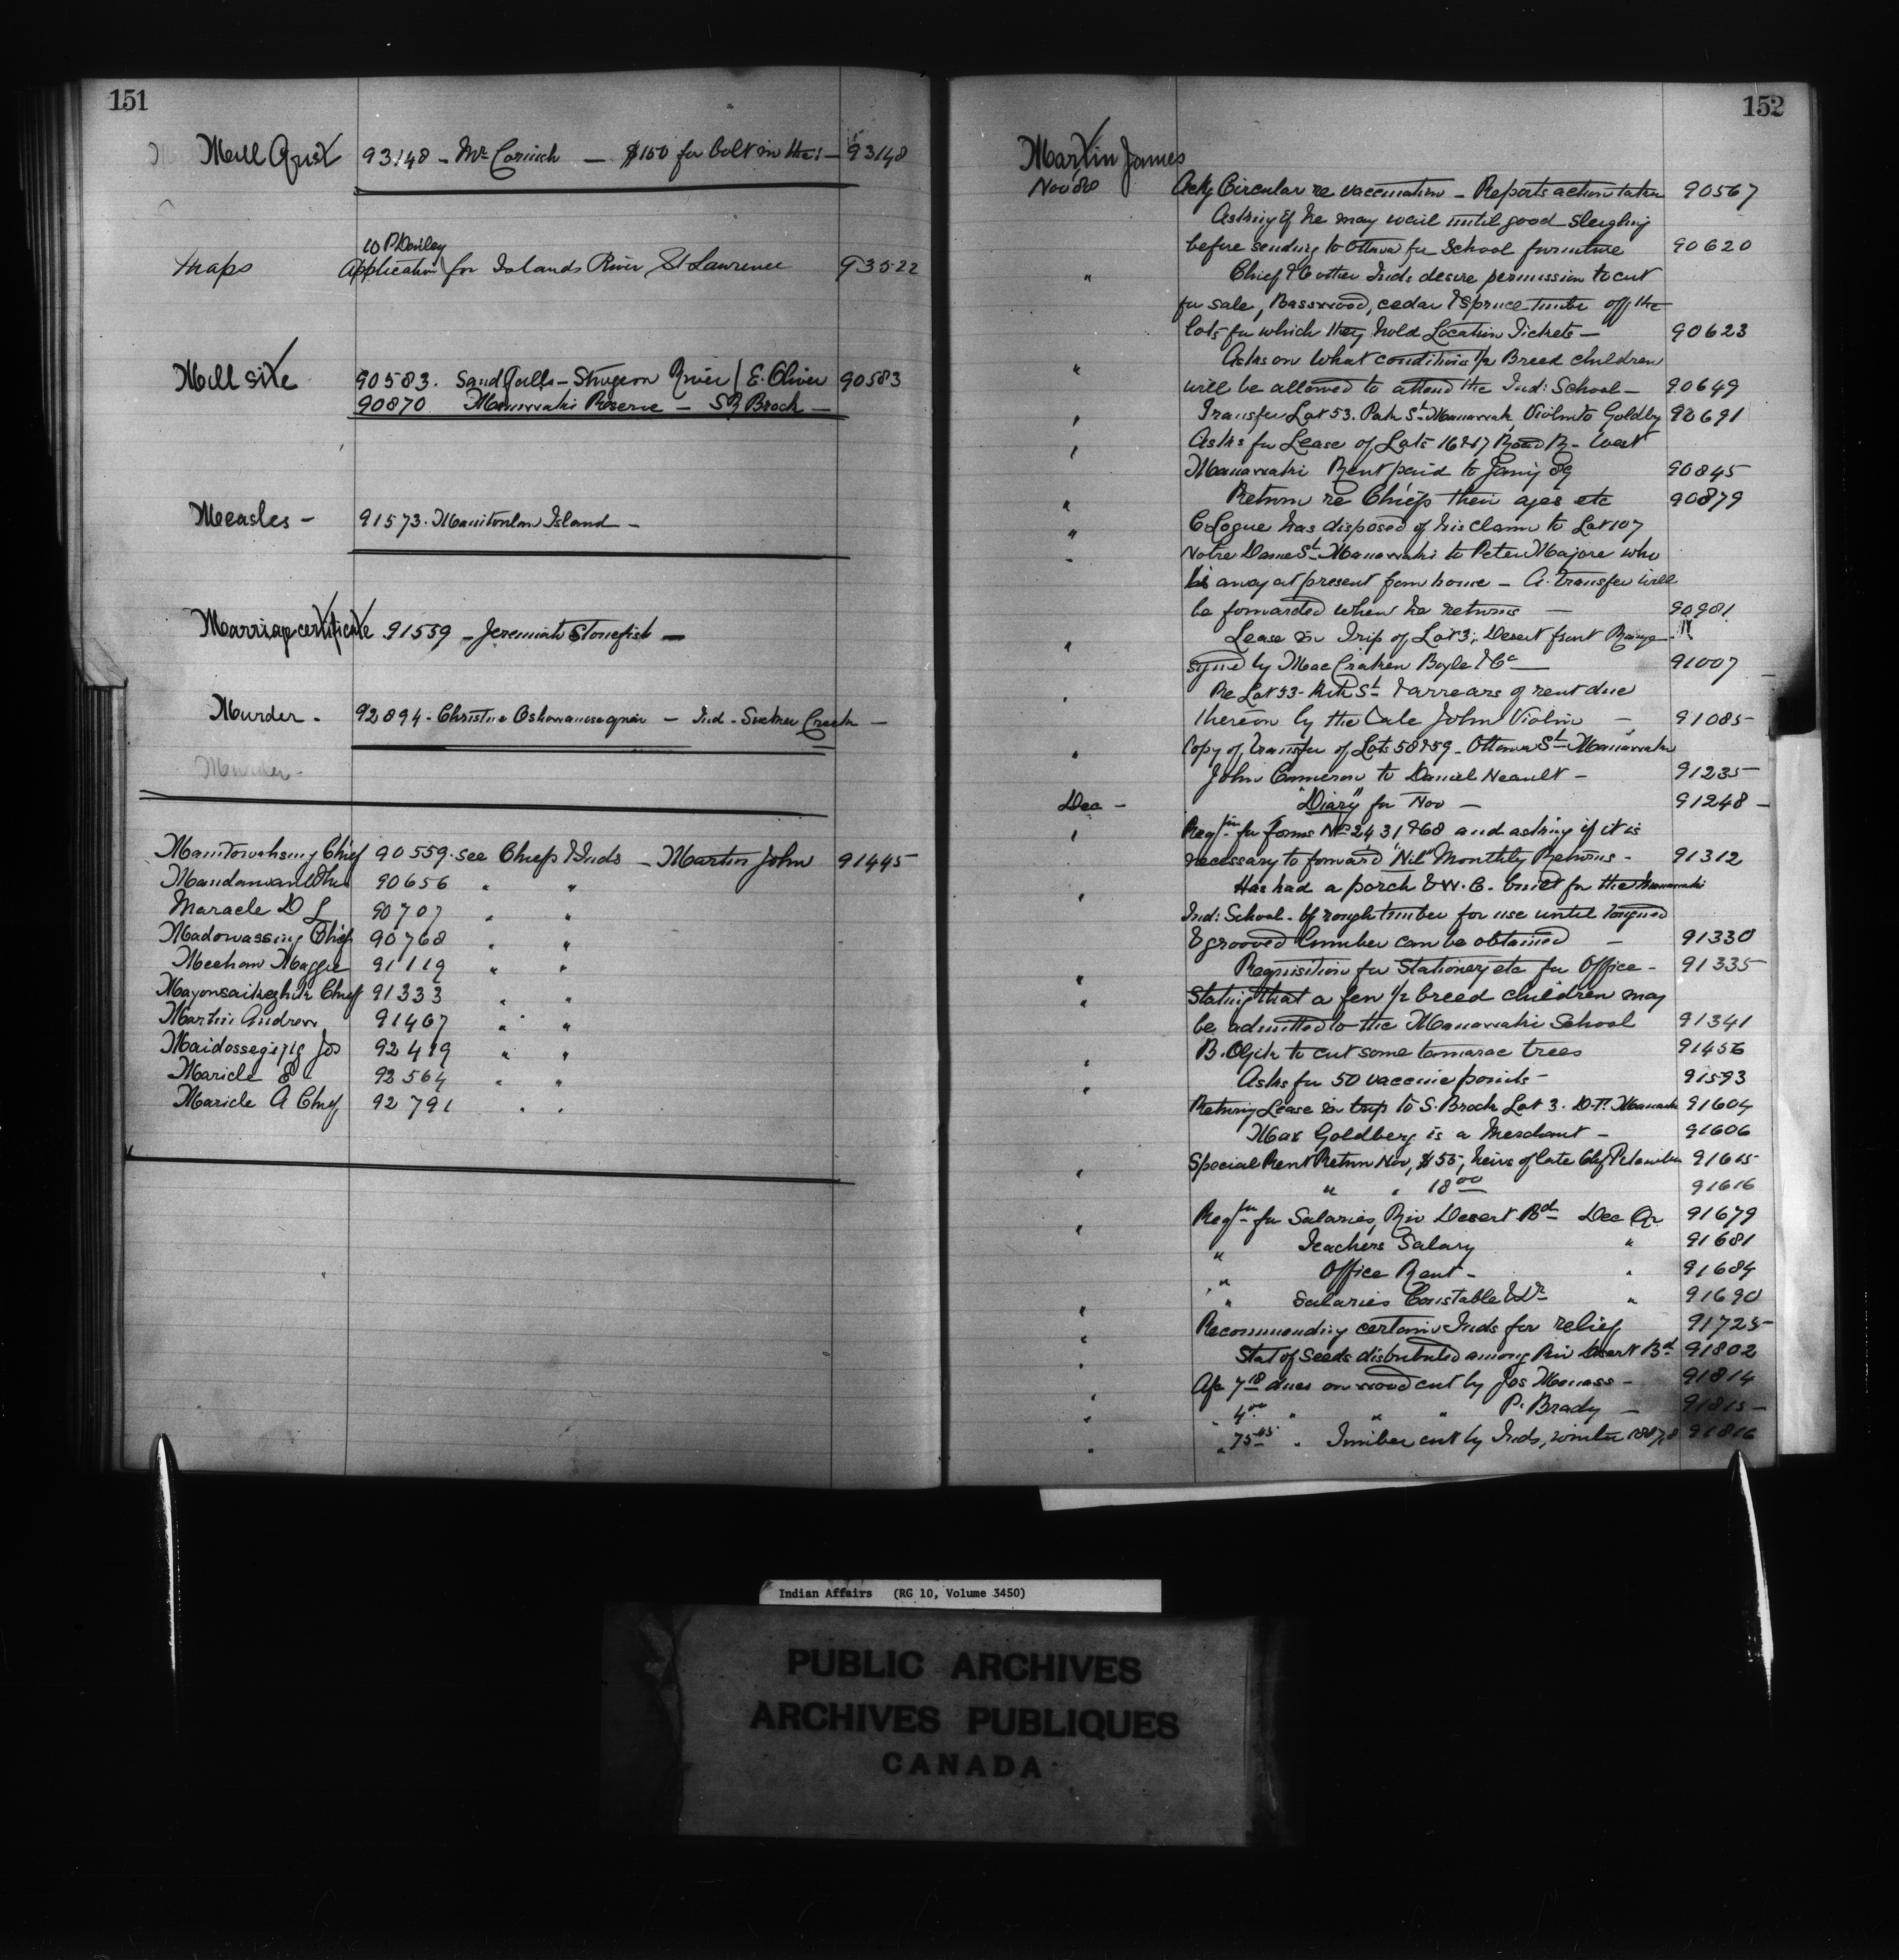 151
Mill Grist 93148 - Mr Cornish - $150 for bolt in the - 93148
W P Danley
Maps Application for Islands River St Lawrence 93522
Mill site 90583. Sand Falls - Sturgeon River / E. Oliver 90583
90870 Maniwaki Reserve - S Brock -
Measles - 91573. Manitoulin Island -
Marriage certificate 91559 - Jeremiah Stonefish -
Murder - 92894 - Christine - Ind - Sucker Creek -
Murder -
Manitowahsing Chief 90559. see Chiefs & Inds - Martin John 91445
90656 " "
Maracle D L 90707 " "
Madowassing Chief 90768 " "
Meehan Maggie 91119 " "
Chief 91333 " "
Martin Andrew 91467 " "
Jos 92419 " "
Maricle E 92564 " "
Maricle A Chief 92791 " "
152
Martin James
Nov 88 Ackg Circular re vaccination - Reports action taken 90567
Asking if he may wait until good sleighing
before sending to Ottawa for School furniture 90620
" Chief & 6 other Inds desire permission to cut
for sale, Basswood, cedar & Spruce timber off the
lots for which they hold Location Tickets - 90623
" Asks on what conditions 1/2 Breed children
will be allowed to attend the Ind: School - 90649
" Transfer Lot 53. Park St Maniwaki, Violin to Goldberg 90691
" Asks for Lease of Lots 16 & 17 Road R - West
Maniwaki Rent paid to Jany 89 90845
" Return re Chiefs their ages etc 90879
" C. Logue has disposed of his claim to Lot 107
Notre Dame St Maniwaki to Peter Majore who
is away at present from home - A transfer will
be forwarded when he returns - 90981
" Lease in Trip of Lot 3, Desert front Range -
signed by MacCraken Boyle & Co 91007
" Re Lot 53 - St & arrears of rent due
thereon by the late John Violin - 91085
" Copy of transfer of Lots 58 & 59 - Ottawa St - Maniwaki
John Cameron to Daniel Neault - 91235
Dec - "Diary" for Nov - 91248
" Reqn for forms No 24 31 & 68 and asking if it is
necessary to forward "Nil" Monthly Returns - 91312
" Has had a porch & W.C. built for the Maniwaki
Ind: School - of rough timber for use until tongued
& grooved lumber can be obtained - 91330
" Requisition for Stationery etc for Office - 91335
" Stating that a few 1/2 breed children may
be admitted to the Maniwaki School 91341
" B. to cut some tamarac trees 91456
" Asks for 50 vaccine points - 91593
Returng Lease in trip to S. Brock Lot 3. D.F. Maniwaki 91604
Max Goldberg is a Merchant - 91606
" Special Rent Return Nov, $55, heirs of late Chf 91615
" " 18 00 91616
" Reqn for Salaries, Riv Desert Bd Dec Qr 91679
" Teachers Salary " 91681
" Office Rent - " 91684
" " Salaries Constable & Dr " 91690
" Recommending certain Inds for relief 91725
" Stat of seeds distributed among Riv Desert Bd 91802
" 7 18 dues on wood cut by Jos - 91814
" 4 00 " " " P. Brady - 91815
" 75 45 " Timber cut by Inds, winter 1887/8 91816
Indian Affairs (RG 10, Volume 3450)
PUBLIC ARCHIVES
ARCHIVES PUBLIQUES
CANADA